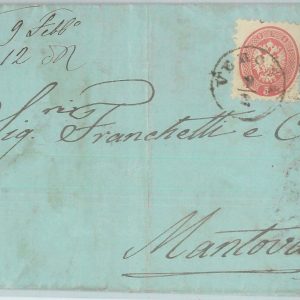 9 Febb.o
12 
VERO
Sig.ri Franchetti e C
Mantova